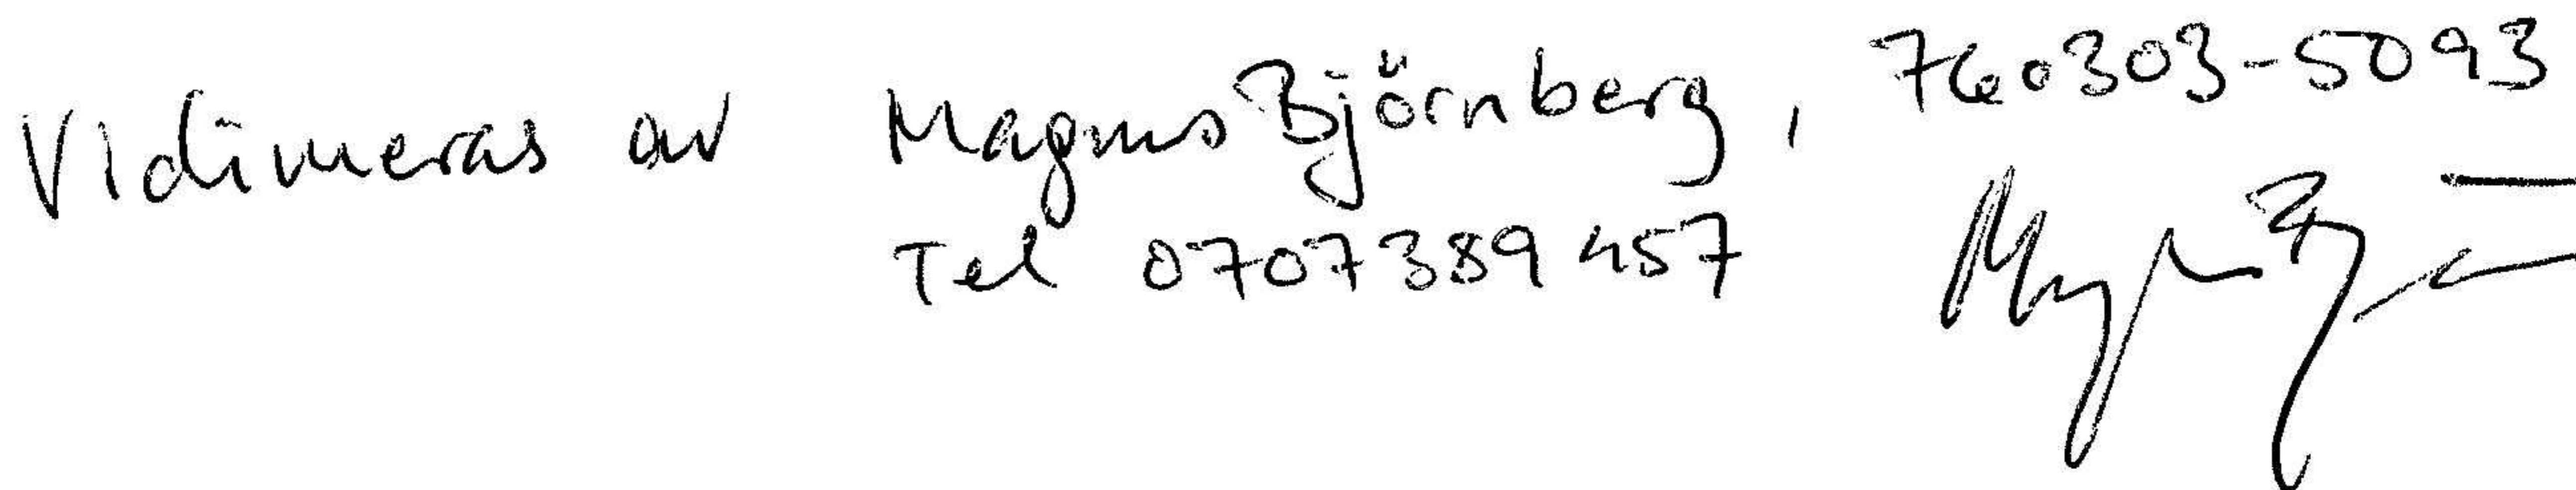 Vidimeras av Magnus Björnberg, 760303-5093
Tel 0707389457